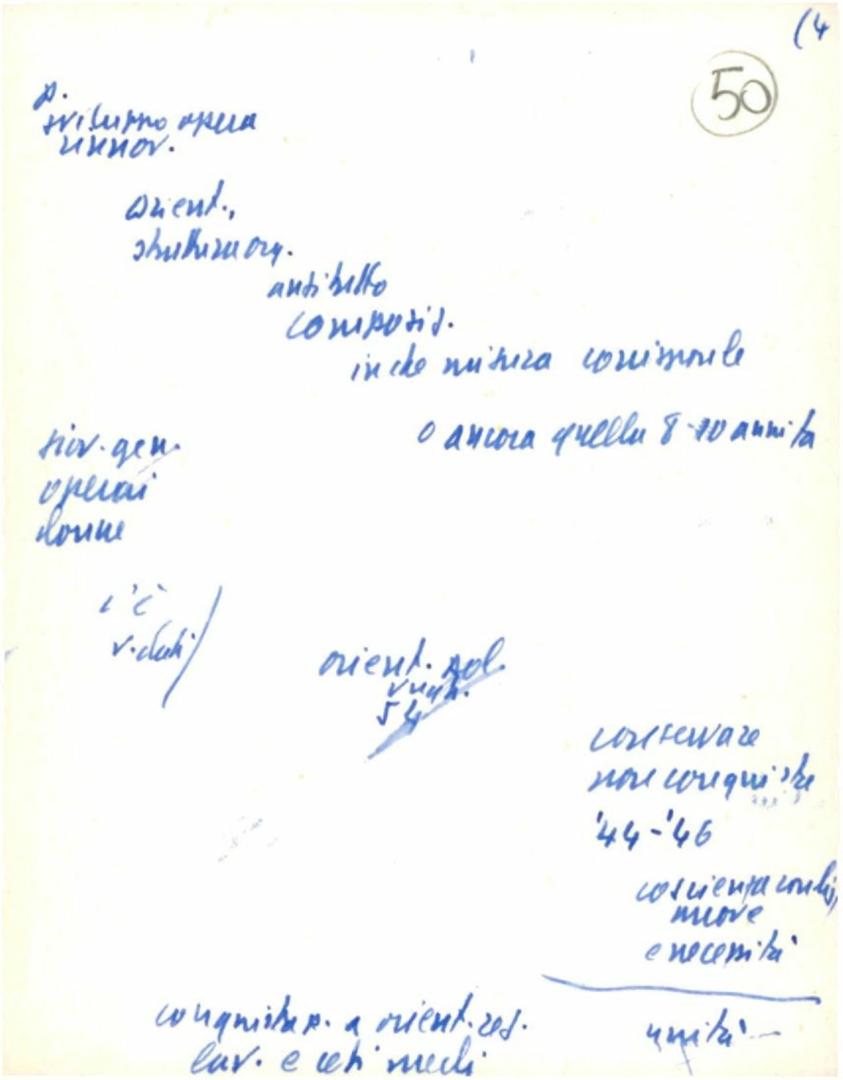 (4
50
p.
sviluppo opera
rinnov.
orient.,
struttura org.
anzitutto
composiz.
in che misura corrisponde
o ancora quella 8-10 anni fa
giov. gen.
operai
donne
c'è
v. dati
orient. pol.
54
conservare
non conquiste
'44-'46
coscienza condiz.
nuove
e necessità
unità
conquista p. a orient.
lav. e ceti medi